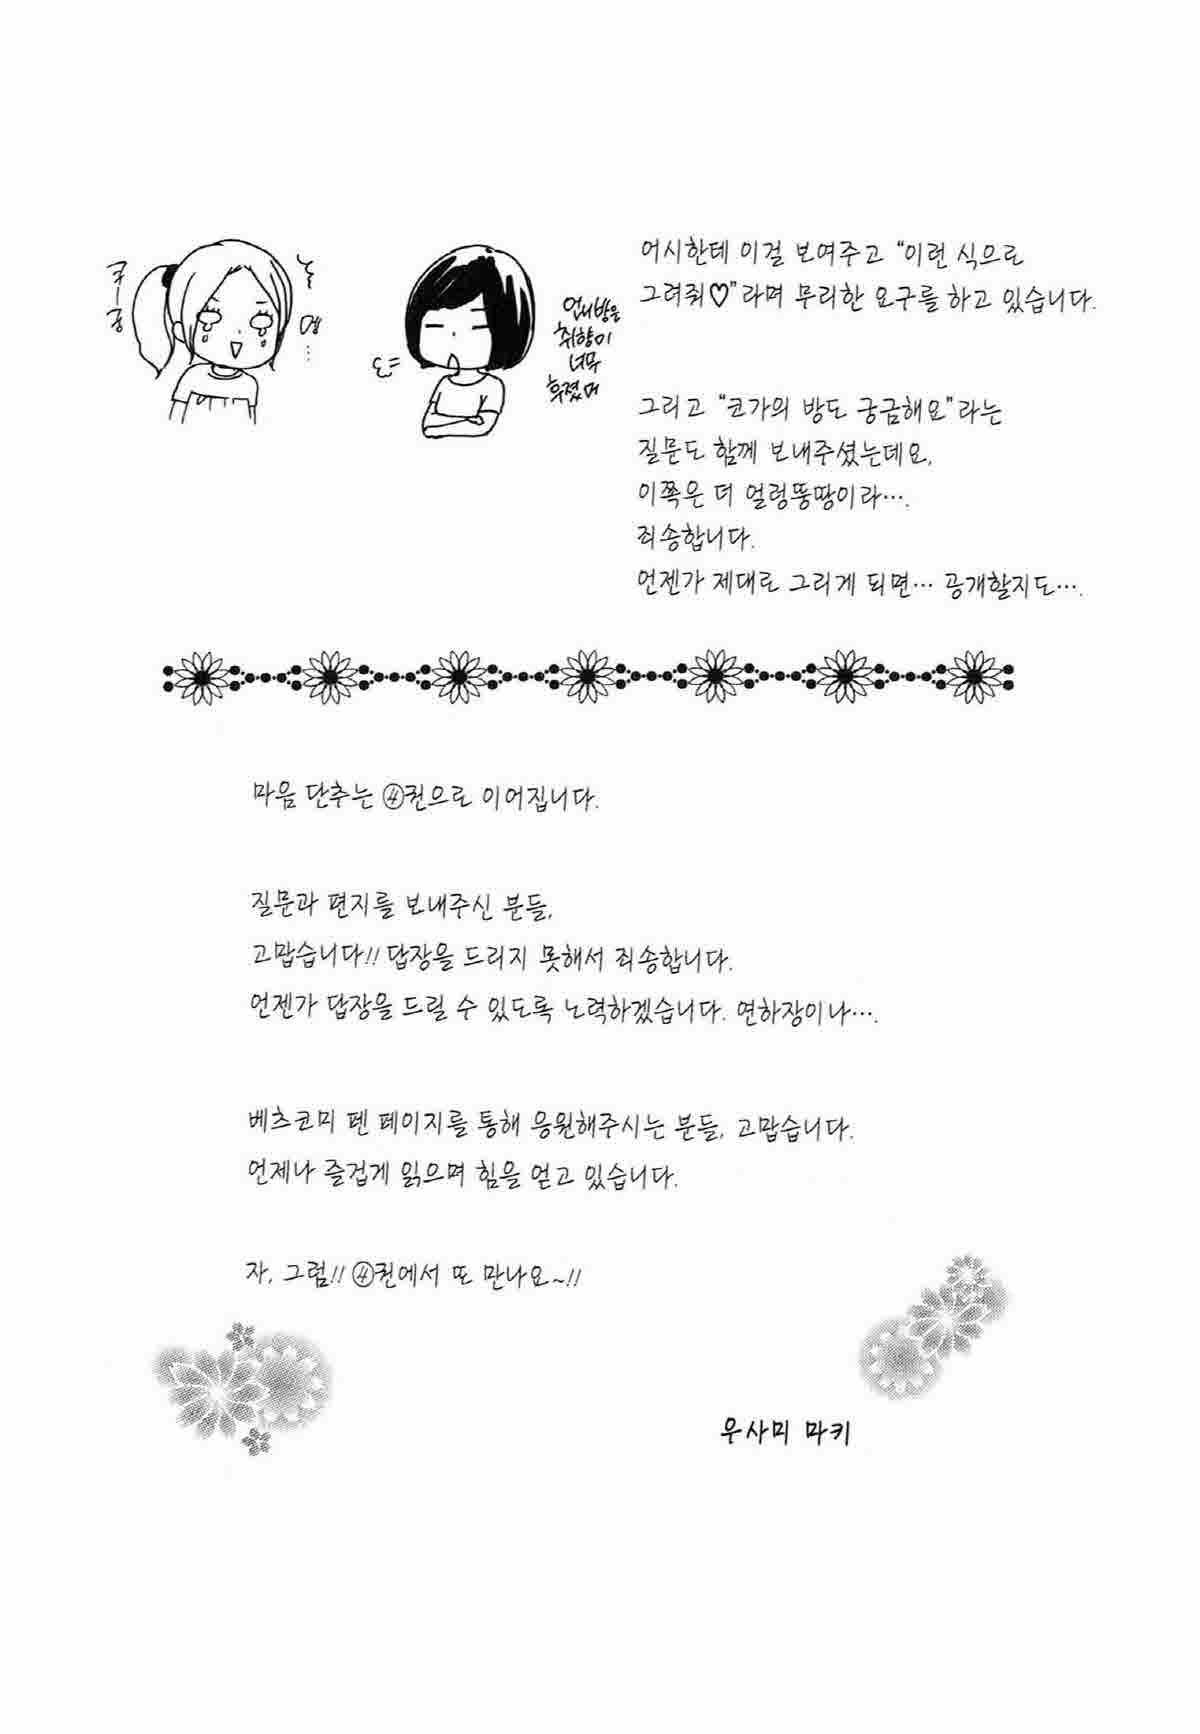 어시한테 이걸 보여주고 "이런 식으로
그려줘♡"라며 무리한 요구를 하고 있습니다.
쿠—궁
눼…
도=
언니 방은
취향이
너무
후졌어
그리고 "코가의 방도 궁금해요"라는
질문도 함께 보내주셨는데요,
이쪽은 더 얼렁뚱땅이라….
죄송합니다.
언젠가 제대로 그리게 되면… 공개할지도….
마음 단추는 ④권으로 이어집니다.
질문과 편지를 보내주신 분들,
고맙습니다!! 답장을 드리지 못해서 죄송합니다.
언젠가 답장을 드릴 수 있도록 노력하겠습니다. 연하장이나….
베츠코미 펜 페이지를 통해 응원해주시는 분들, 고맙습니다.
언제나 즐겁게 읽으며 힘을 얻고 있습니다.
자, 그럼!! ④권에서 또 만나요~!!
우사미 마키